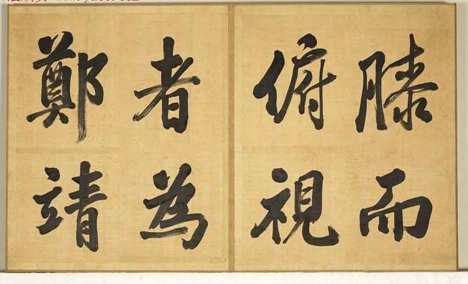 膝而
俯視
者為
鄭靖